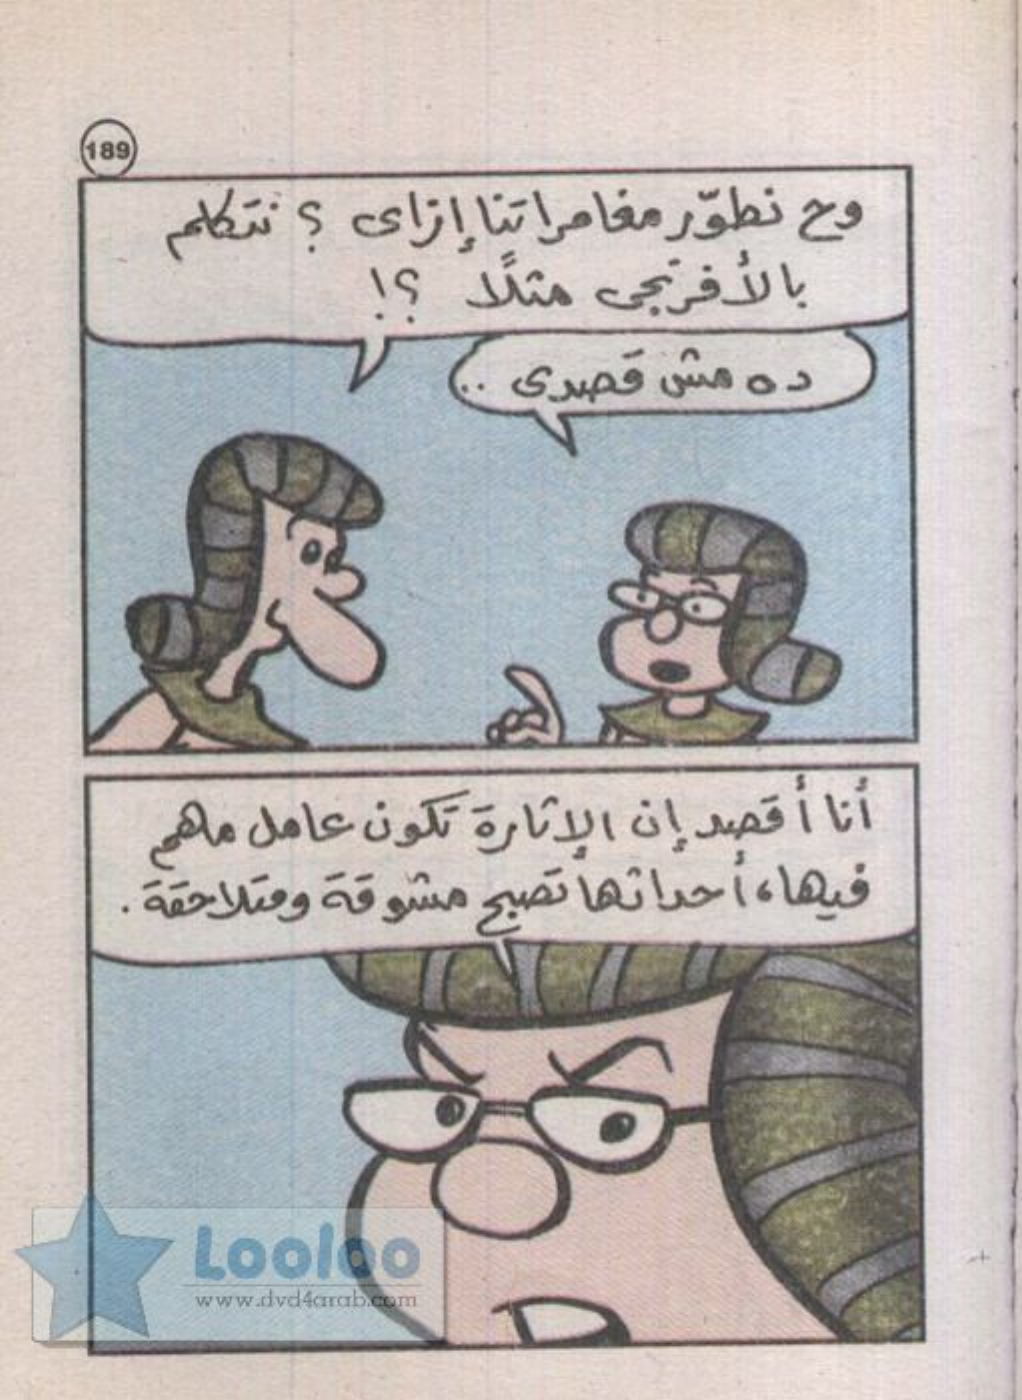 189
وح نطوّر مغامراتنا إزاى ؟ نتكلم
بالأفرنجى مثلًا ؟!
ده مش قصدى ..
أنا أقصد إن الإثارة تكون عامل مهم
فيها، أحداثها تصبح مشوقة ومتلاحقة .
Looloo
www.dvd4arab.com